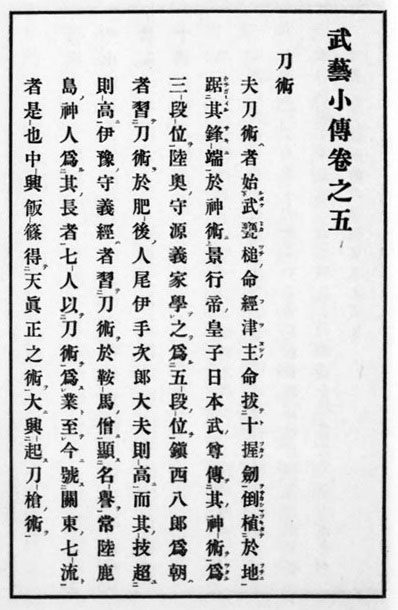 武藝小傳卷之五
刀術
夫刀術者始武甕槌命經津主命拔十握劒倒植於地
踞其鋒端於神術景行帝皇子日本武尊傳其神術爲
三段位陸奥守源義家學之爲五段位鎭西八郎爲朝
者習刀術於肥後人尾伊手次郎大夫則高而其技超
則高伊豫守義經者習刀術於鞍馬僧顯名譽常陸鹿
島神人爲其長者七人以刀術爲業至今號關東七流
者是也中興飯篠得天眞正之術大興起刀槍術